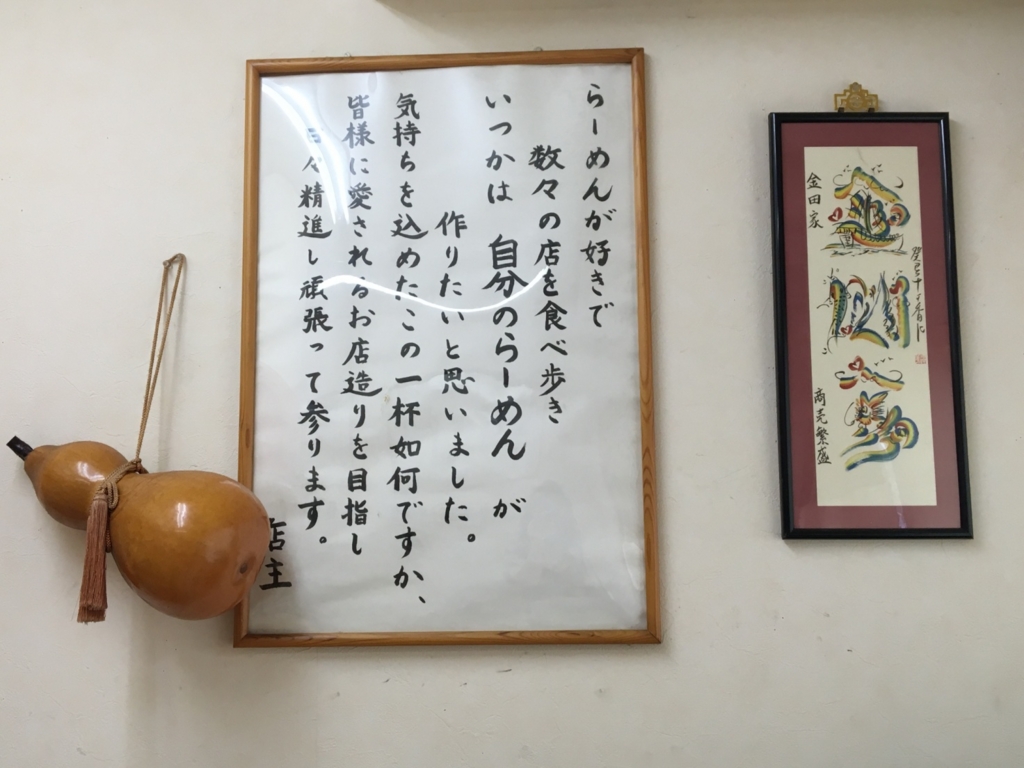 らーめんが好きで
数々の店を食べ歩き
いつかは 自分のらーめん が
作りたいと思いました。
気持ちを込めたこの一杯如何ですか、
皆様に愛されるお店造りを目指し
日々精進し頑張って参ります。
店主
金田家
商売繁盛